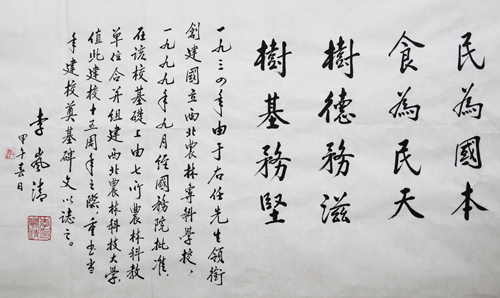 民為國本
食為民天
樹德務滋
樹基務堅
一九三四年由于右任先生領銜
創建國立西北農林專科學校，
一九九九年九月經國務院批准，
在該校基礎上由七所農林科教
單位合并組建西北農林科技大學，
值此建校十五周年之際重書當
年建校奠基碑文以誌之。
李嵐清
甲午春日